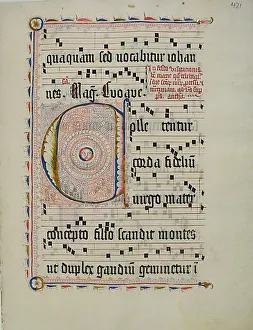 quaquam sed vocabitur iohan
nes. Mag. Euouae.
Colle tentur
corda fidelium
virgo mater
concepto filio scandit montes
ut duplex gaudium geminetur i